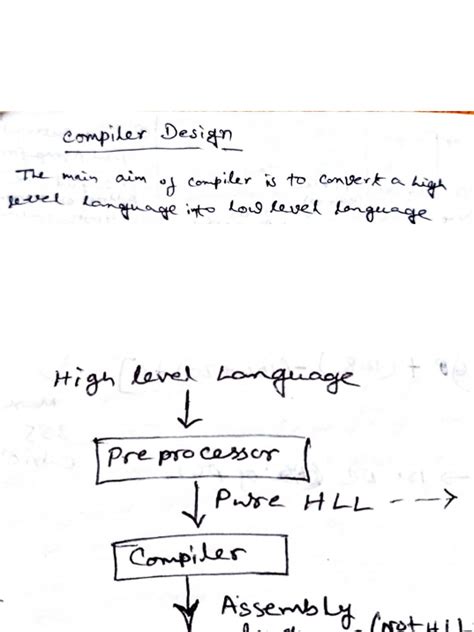 Compiler Design
The main aim of compiler is to convert a high
level language into low level language
High level Language
Preprocessor
Pure HLL
Compiler
Assembly
(not HLL